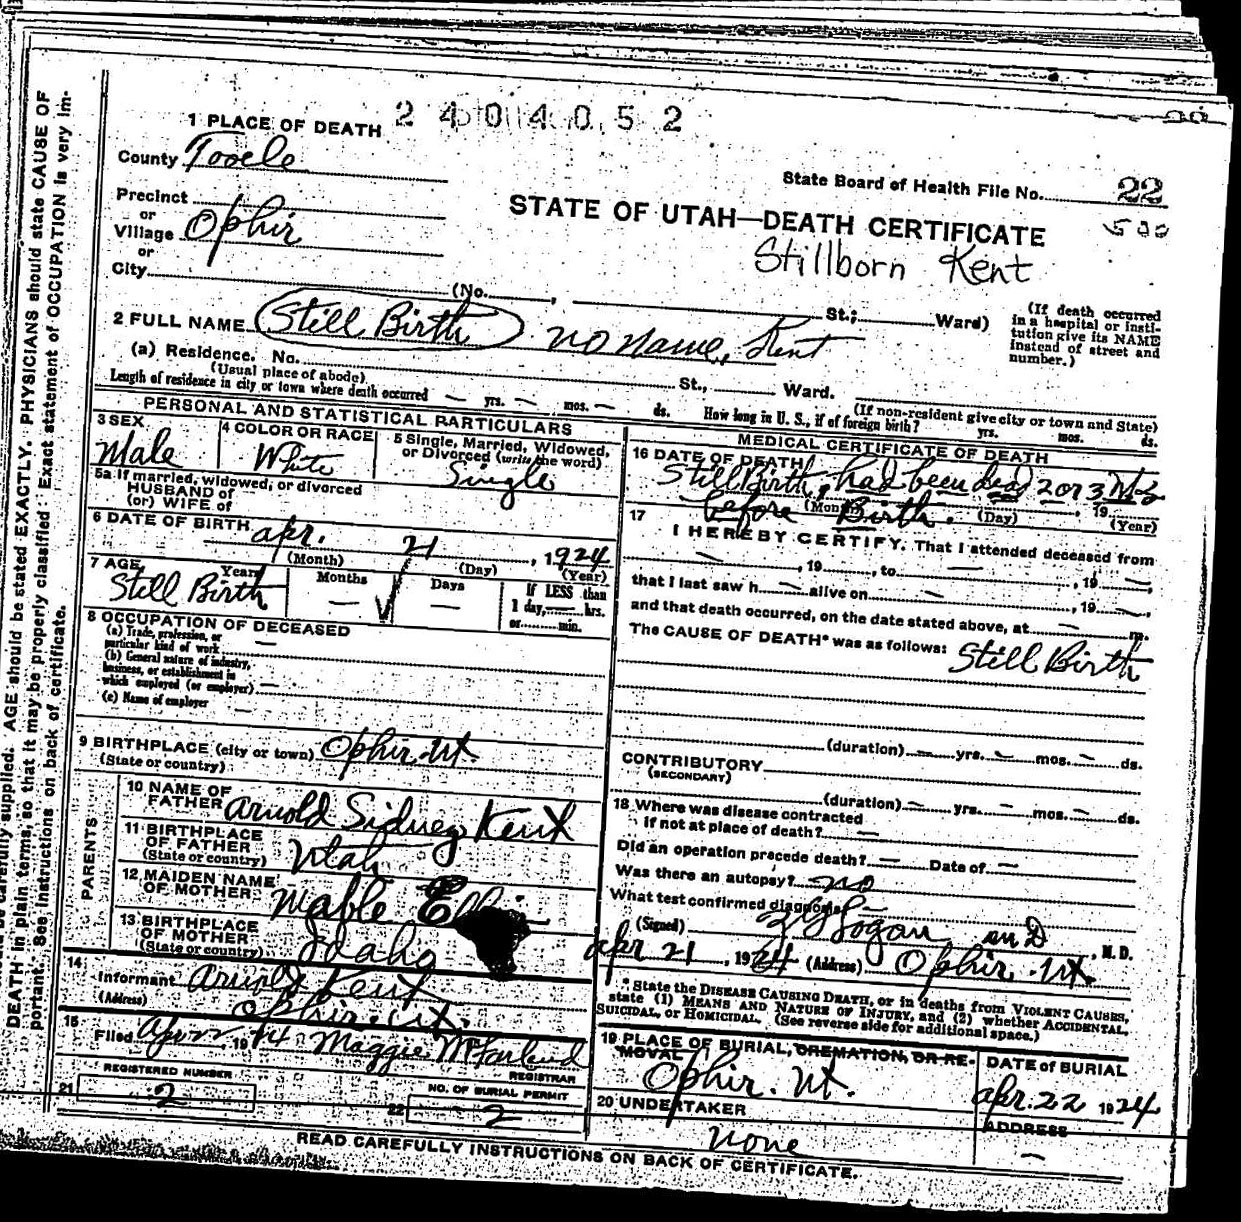 2404052
1 PLACE OF DEATH
County Tooele
State Board of Health File No. 22
500
Precinct
or
Village Ophir
or
City
STATE OF UTAH—DEATH CERTIFICATE
Stillborn Kent
(No. , St.; Ward)
(If death occurred
in a hospital or insti-
tution give its NAME
instead of street and
number.)
2 FULL NAME Still Birth no name, Kent
(a) Residence. No. St., Ward.
(Usual place of abode)
(If non-resident give city or town and State)
Length of residence in city or town where death occurred — yrs. — mos. — ds. How long in U. S., if of foreign birth? yrs. mos. ds.
PERSONAL AND STATISTICAL PARTICULARS
3 SEX
Male
4 COLOR OR RACE
White
5 Single, Married, Widowed,
or Divorced (write the word)
Single
5a If married, widowed, or divorced
HUSBAND of
(or) WIFE of
6 DATE OF BIRTH
Apr. 21, 1924
(Month) (Day) (Year)
7 AGE Years Months Days If LESS than
Still Birth — — 1 day, — hrs.
or min.
8 OCCUPATION OF DECEASED
(a) Trade, profession, or
particular kind of work —
(b) General nature of industry,
business, or establishment in
which employed (or employer) —
(c) Name of employer —
9 BIRTHPLACE (city or town) Ophir Ut.
(State or country)
PARENTS
10 NAME OF
FATHER Arnold Sidney Kent
11 BIRTHPLACE
OF FATHER
(State or country) Utah
12 MAIDEN NAME
OF MOTHER Mable
13 BIRTHPLACE
OF MOTHER
(State or country) Idaho
14
Informant Arnold Kent
(Address) Ophir. Ut.
15
Filed Apr 22 1924 Maggie McFarland
REGISTRAR
21 REGISTERED NUMBER
2
22 NO. OF BURIAL PERMIT
2
MEDICAL CERTIFICATE OF DEATH
16 DATE OF DEATH
Still Birth, had been dead 2 or 3
before Birth.
(Month) (Day) , 19 (Year)
17
I HEREBY CERTIFY, That I attended deceased from
— , 19 , to — , 19 —,
that I last saw h — alive on — , 19 —,
and that death occurred, on the date stated above, at — m.
The CAUSE OF DEATH* was as follows: Still Birth
(duration) — yrs. — mos. — ds.
CONTRIBUTORY
(SECONDARY)
(duration) — yrs. — mos. — ds.
18 Where was disease contracted
if not at place of death? —
Did an operation precede death? — Date of —
Was there an autopsy? no
What test confirmed diagnosis
(Signed) Logan M D , M. D.
Apr 21, 1924 (Address) Ophir. Ut.
* State the DISEASE CAUSING DEATH, or in deaths from VIOLENT CAUSES,
state (1) MEANS AND NATURE OF INJURY, and (2) whether ACCIDENTAL,
SUICIDAL, or HOMICIDAL. (See reverse side for additional space.)
19 PLACE OF BURIAL, CREMATION, OR RE-
MOVAL
Ophir. Ut.
DATE of BURIAL
Apr. 22 1924
20 UNDERTAKER
none
ADDRESS
—
READ CAREFULLY INSTRUCTIONS ON BACK OF CERTIFICATE.
be carefully supplied. AGE should be stated EXACTLY. PHYSICIANS should state CAUSE OF
DEATH in plain terms, so that it may be properly classified. Exact statement of OCCUPATION is very im-
portant. See instructions on back of certificate.